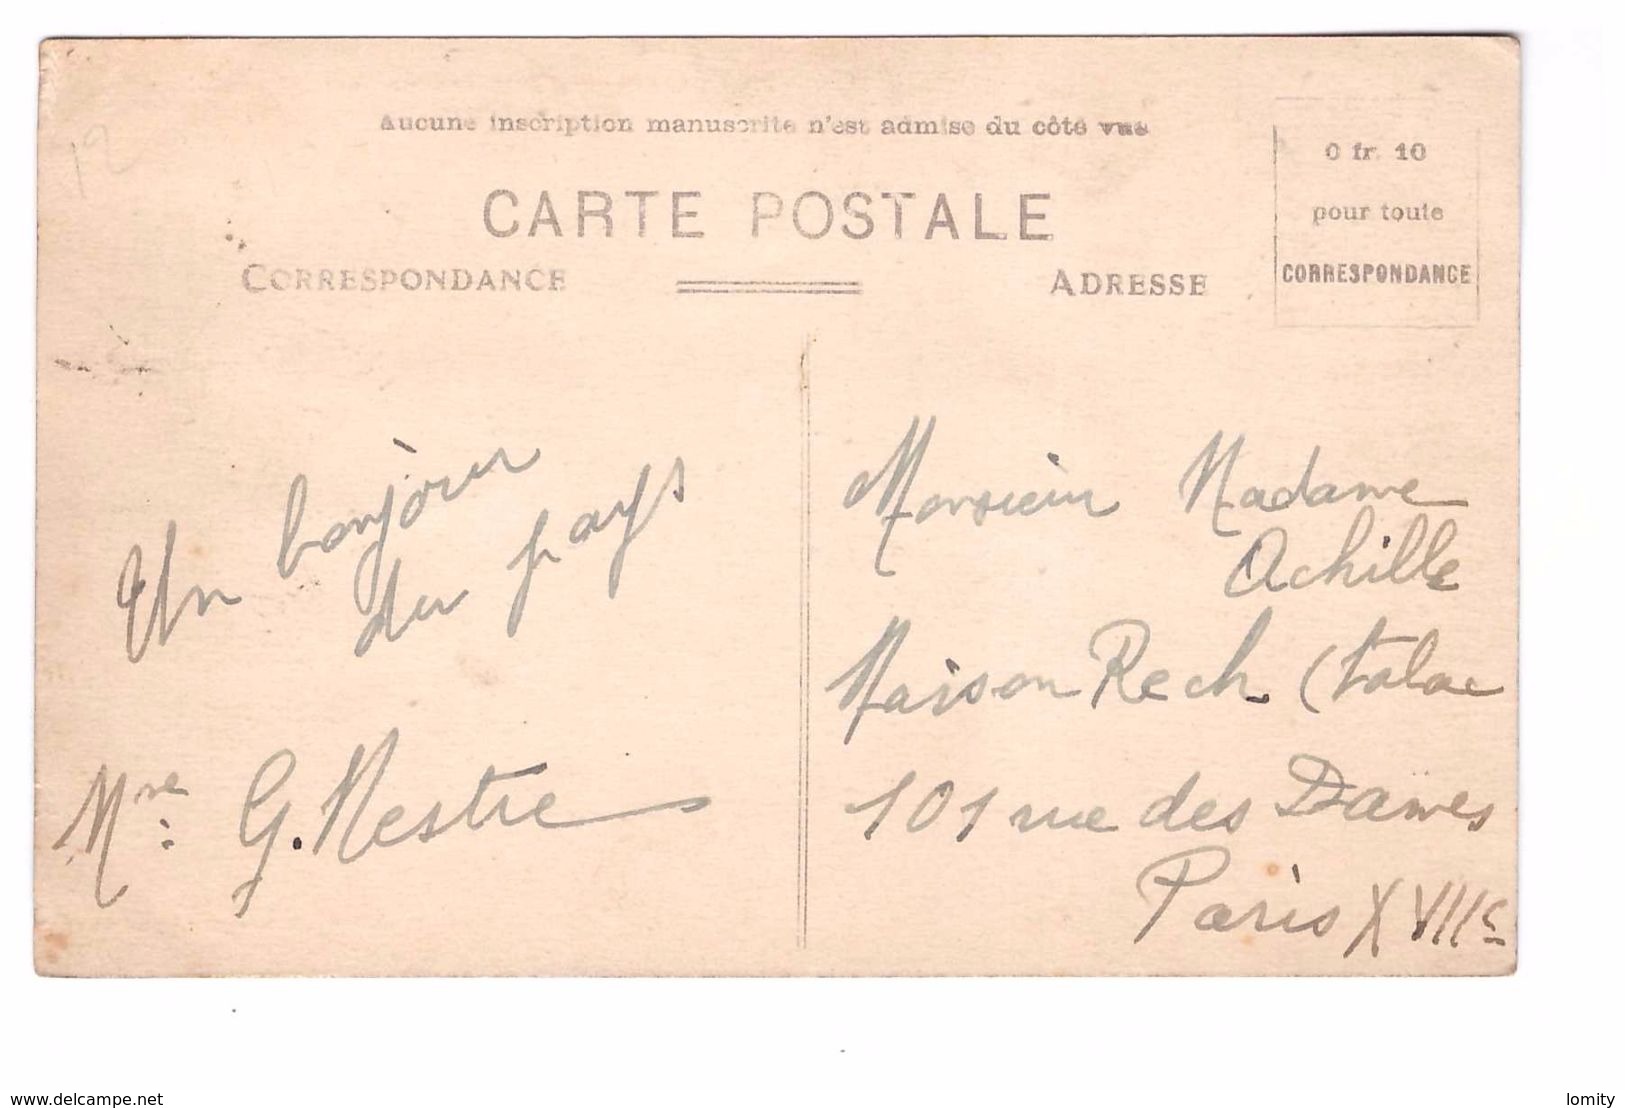 12
Aucune inscription manuscrite n'est admise du côté vue
CARTE POSTALE
CORRESPONDANCE
ADRESSE
0 fr. 10
pour toute
CORRESPONDANCE
Un bonjour
du pays
Mme: G. Mestre
Monsieur Madame
Achille
Maison Rech (talac
101 rue des Dames
Paris XVIIe
www.delcampe.net
lomity